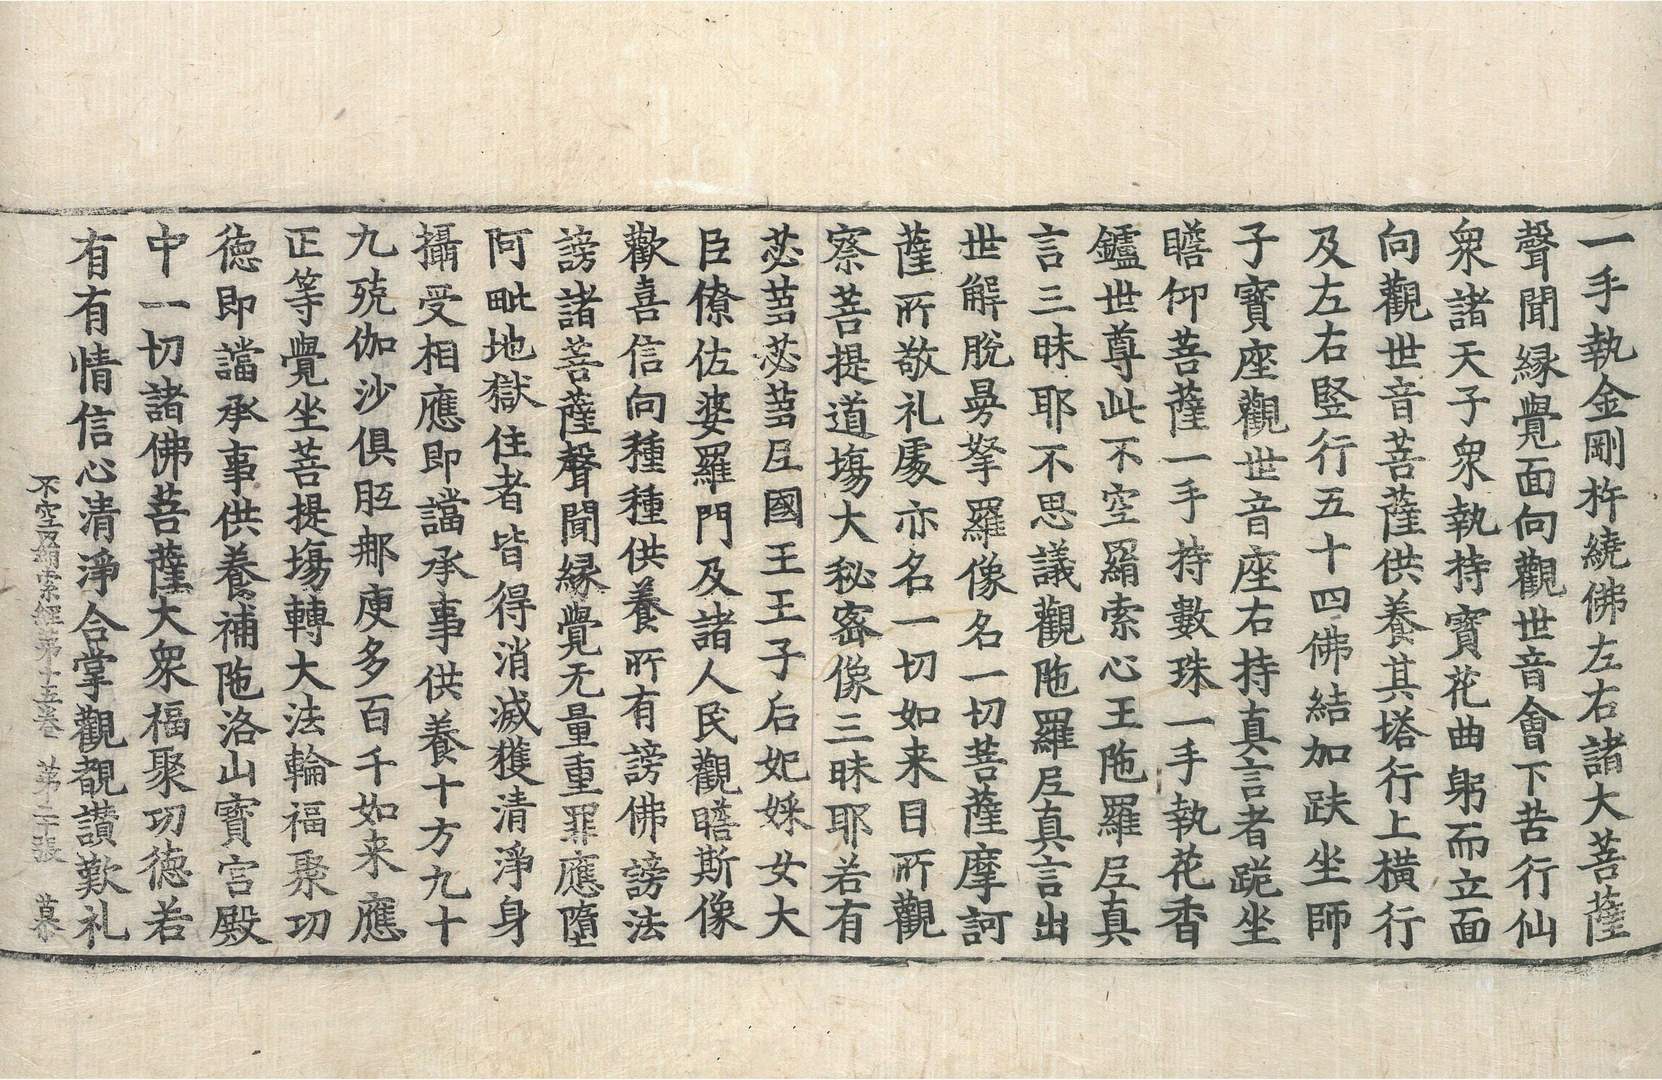 一手執金剛杵繞佛左右諸大菩薩
聲聞縁覺面向觀世音會下苦行仙
衆諸天子衆執持寶花曲躬而立面
向觀世音菩薩供養其塔行上橫行
及左右竪行五十四佛結加趺坐師
子寶座觀世音座右持真言者跪坐
瞻仰菩薩一手持數珠一手執花香
鑪世尊此不空羂索心王陁羅尼真
言三昧耶不思議觀陁羅尼真言出
世解脫旁拏羅像名一切菩薩摩訶
薩所敬礼處亦名一切如来目所觀
察菩提道塲大秘密像三昧耶若有
苾蒭苾蒭尼國王王子后妃婇女大
臣僚佐婆羅門及諸人民觀瞻斯像
歡喜信向種種供養所有謗佛謗法
謗諸菩薩聲聞縁覺无量重罪應墮
阿毗地獄住者皆得消滅獲清淨身
攝受相應即讜承事供養十方九十
九殑伽沙俱胝那庾多百千如来應
正等覺坐菩提塲轉大法輪福聚功
德即讜承事供養補陁洛山寶宮殿
中一切諸佛菩薩大衆福聚功德若
有有情信心清淨合掌觀覩讚歎礼
不空羂索經第十五卷 第二十張 慕